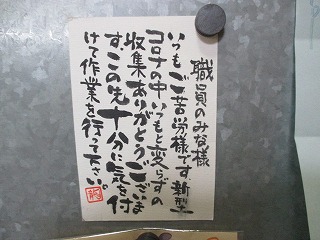 職員のみな様
いつもご苦労様です。新型
コロナの中いつもと変らずの
収集ありがとうございま
す。この先十分に気を付
けて作業を行って下さい。